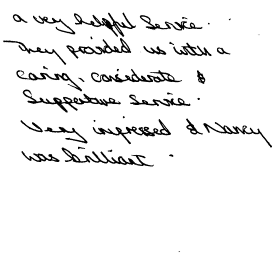 a very helpful service.
They provided us with a
caring, considerate &
Supportive Service.
Very impressed & Nancy
was brilliant.